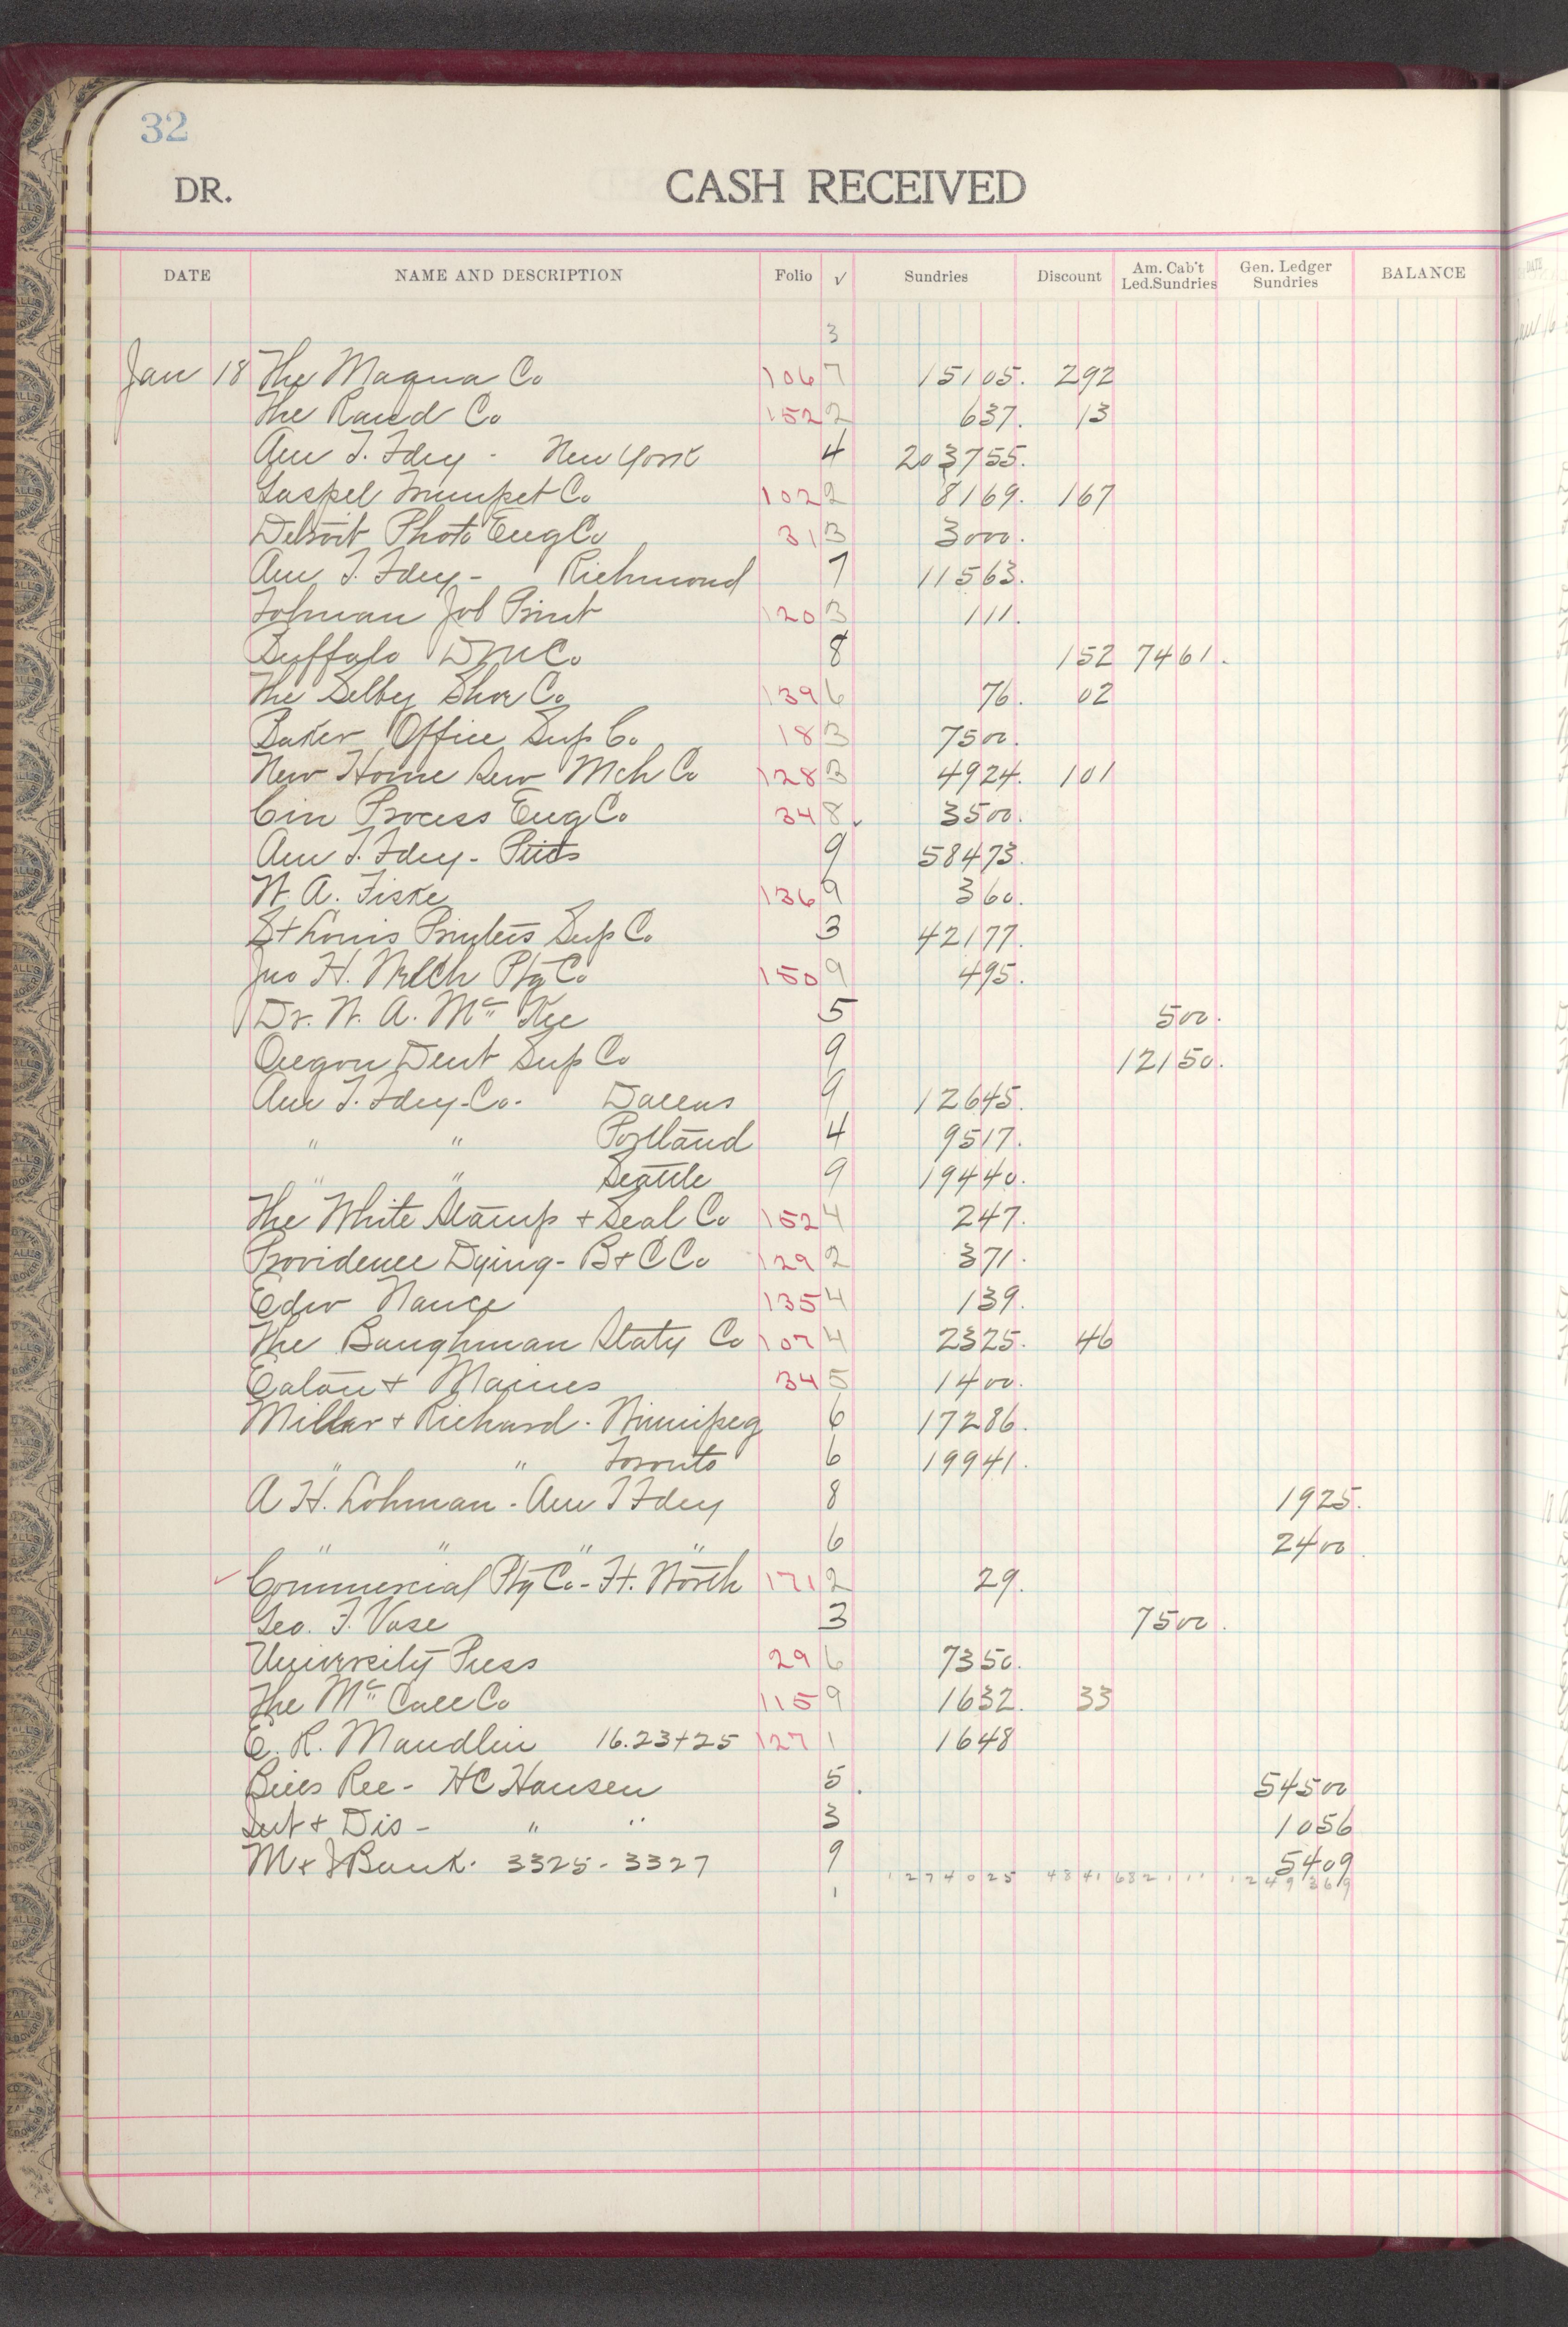 32
DR. CASH RECEIVED
DATE NAME AND DESCRIPTION Folio √ Sundries Discount Am. Cab't Led.Sundries Gen. Ledger Sundries BALANCE
3
Jan 18 The Magna Co 106 7 15105. 292
The Rand Co 152 2 637. 13
Am T. Fdry - New York 4 203755.
Gospel Trumpet Co 102 2 8169. 167
Detroit Photo Eng Co 31 3 3000.
Am T. Fdry - Richmond 7 11563.
Tohman Job Print 120 3 111.
Buffalo D M Co 8 152 7461.
The Selby Shoe Co 139 6 76. 02
Baker Office Sup Co 18 3 7500.
New Home Sew Mch Co 128 3 4924. 101
Cin Process Eng Co 34 8 3500.
Am T. Fdry - Pitts 9 58473.
W. A. Fiske 136 9 360.
St Louis Printers Sup Co 3 42177.
Jno H. Welch Ptg Co 150 9 495.
Dr. W. A. Mc Kee 5 500.
Oregon Dent Sup Co 9 12150.
Am T. Fdry - Co. Dallas 9 12645.
" " Portland 4 9517.
" " Seattle 9 19440.
The White Stamp + Seal Co 152 4 247.
Providence Dying - B + C Co 129 2 371.
Edw Nance 135 4 139.
The Baughman Staty Co 107 4 2325. 46
Eaton + Maines 34 5 1400.
Miller + Richard. Winnipeg 6 17286.
" " Toronto 6 19941.
A H. Lohman - Am T Fdry 8 1925.
" " " " 6 2400.
✓ Commercial Ptg Co - Ft. Worth 171 2 29.
Geo. F. Vose 3 7500.
University Press 29 6 7350.
The Mc Call Co 115 9 1632. 33
E. R. Maudlin 16.23+25 127 1 1648
Bills Rec - H C Hansen 5. 54500
Int + Dis - " " 3 1056
M + J Bank. 3325 - 3327 9 5409
1 1274025 4841 682111 1249369